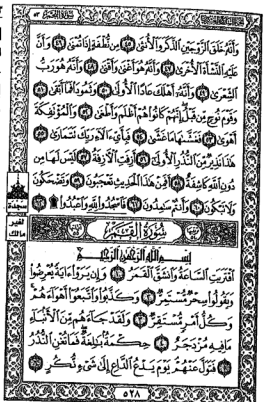 سُورَةُ النَّجْمِ ٥٣
وَأَنَّهُۥ خَلَقَ ٱلزَّوْجَيْنِ ٱلذَّكَرَ وَٱلْأُنثَىٰ ٤٥ مِن نُّطْفَةٍ إِذَا تُمْنَىٰ ٤٦ وَأَنَّ
عَلَيْهِ ٱلنَّشْأَةَ ٱلْأُخْرَىٰ ٤٧ وَأَنَّهُۥ هُوَ أَغْنَىٰ وَأَقْنَىٰ ٤٨ وَأَنَّهُۥ هُوَ رَبُّ
ٱلشِّعْرَىٰ ٤٩ وَأَنَّهُۥٓ أَهْلَكَ عَادًا ٱلْأُولَىٰ ٥٠ وَثَمُودَا۟ فَمَآ أَبْقَىٰ ٥١
وَقَوْمَ نُوحٍ مِّن قَبْلُ إِنَّهُمْ كَانُوا۟ هُمْ أَظْلَمَ وَأَطْغَىٰ ٥٢ وَٱلْمُؤْتَفِكَةَ
أَهْوَىٰ ٥٣ فَغَشَّىٰهَا مَا غَشَّىٰ ٥٤ فَبِأَىِّ ءَالَآءِ رَبِّكَ تَتَمَارَىٰ ٥٥
هَٰذَا نَذِيرٌ مِّنَ ٱلنُّذُرِ ٱلْأُولَىٰٓ ٥٦ أَزِفَتِ ٱلْءَازِفَةُ ٥٧ لَيْسَ لَهَا مِن
دُونِ ٱللَّهِ كَاشِفَةٌ ٥٨ أَفَمِنْ هَٰذَا ٱلْحَدِيثِ تَعْجَبُونَ ٥٩ وَتَضْحَكُونَ
وَلَا تَبْكُونَ ٦٠ وَأَنتُمْ سَٰمِدُونَ ٦١ فَٱسْجُدُوا۟ لِلَّهِ وَٱعْبُدُوا۟ ۩ ٦٢
سجدة
لغير
مالك
سُورَةُ الْقَمَرِ
بِسْمِ ٱللَّهِ ٱلرَّحْمَٰنِ ٱلرَّحِيمِ
ٱقْتَرَبَتِ ٱلسَّاعَةُ وَٱنشَقَّ ٱلْقَمَرُ ١ وَإِن يَرَوْا۟ ءَايَةً يُعْرِضُوا۟
وَيَقُولُوا۟ سِحْرٌ مُّسْتَمِرٌّ ٢ وَكَذَّبُوا۟ وَٱتَّبَعُوٓا۟ أَهْوَآءَهُمْ
وَكُلُّ أَمْرٍ مُّسْتَقِرٌّ ٣ وَلَقَدْ جَآءَهُم مِّنَ ٱلْأَنۢبَآءِ
مَا فِيهِ مُزْدَجَرٌ ٤ حِكْمَةٌۢ بَٰلِغَةٌ فَمَا تُغْنِ ٱلنُّذُرُ
٥ فَتَوَلَّ عَنْهُمْ يَوْمَ يَدْعُ ٱلدَّاعِ إِلَىٰ شَىْءٍ نُّكُرٍ ٦
٥٢٨